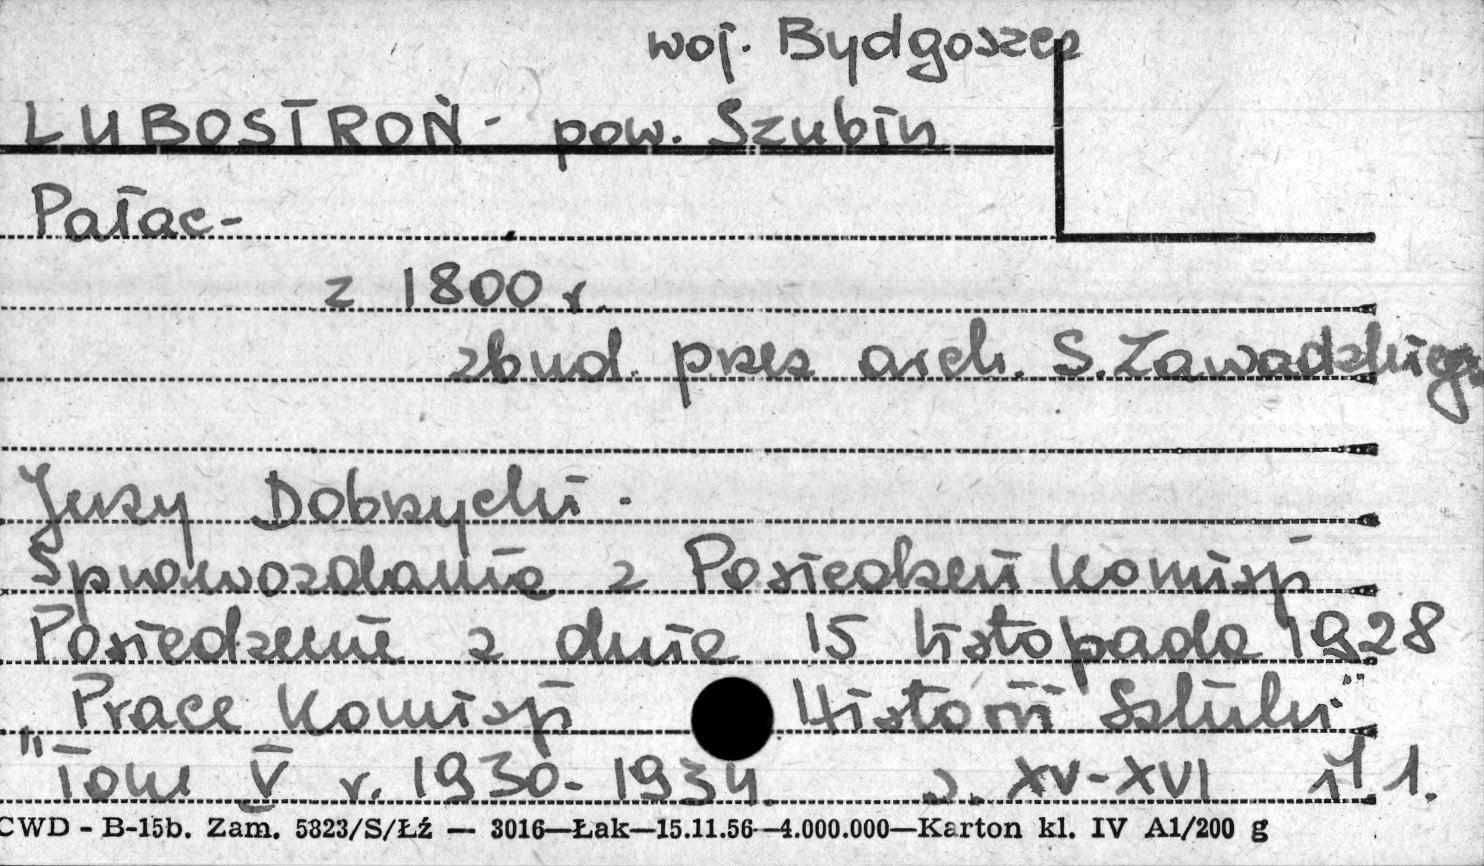 woj. Bydgoszcz
LUBOSTROŃ - pow. Szubin
Pałac -
z 1800 r.
zbud. przez arch. S. Zawadzkiego
Jerzy Dobrzycki.
Sprawozdania z Posiedzeń Komisji
Posiedzenie z dnia 15 listopada 1928
"Prace Komisji Historii Sztuki"
Tom V r. 1930-1934. s. XV-XVI il. 1.
CWD - B-15b. Zam. 5823/S/Łź — 3016—Łak—15.11.56—4.000.000—Karton kl. IV A1/200 g